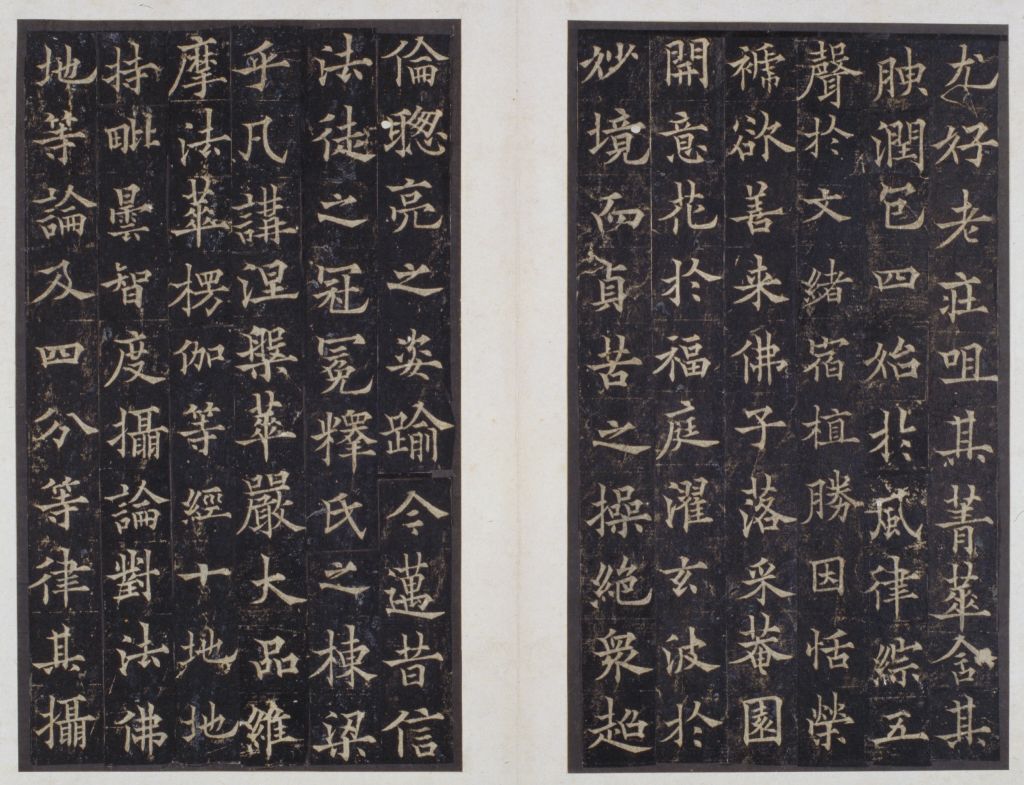 尤好老莊咀其菁華含其
腴潤包四始於風律綜五
聲於文緒宿植勝因恬榮
褫欲善来佛子落采菴園
開意花於福庭濯玄波於
妙境而貞苦之操絶衆超
倫聦亮之姿踰今邁昔信
法徒之冠冕釋氏之棟梁
乎凡講涅槃華嚴大品維
摩法華楞伽等經十地地
持毗曇智度攝論對法佛
地等論及四分等律其攝